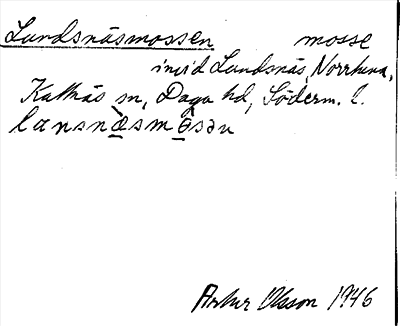 Landsnäsmossen mosse
invid Landsnäs, Norrtuna,
Kattnäs sn, Daga hd, Söderm. l.
lansnäsmåsən
Artur Olsson 1946